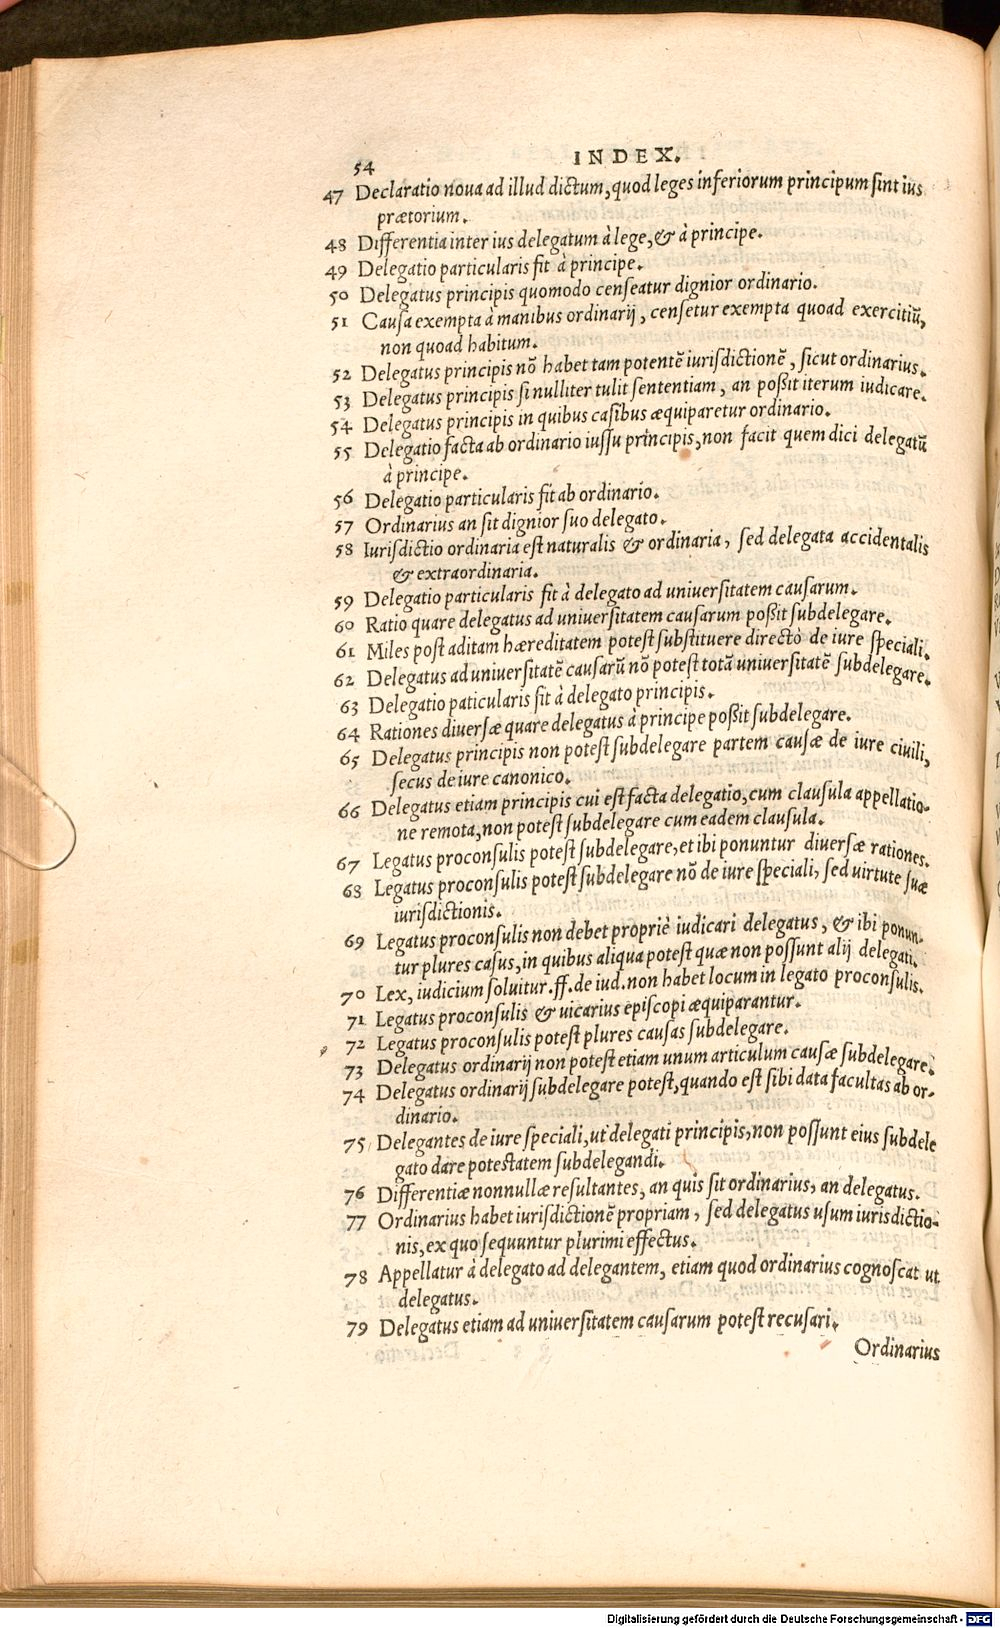 54
INDEX.
47 Declaratio noua ad illud dictum, quod leges inferiorum principum sint ius
prætorium.
48 Differentia inter ius delegatum à lege, & à principe.
49 Delegatio particularis fit à principe.
50 Delegatus principis quomodo censeatur dignior ordinario.
51 Causa exempta à manibus ordinarij, censetur exempta quoad exercitiũ,
non quoad habitum.
52 Delegatus principis nõ habet tam potentẽ iurisdictionẽ, sicut ordinarius.
53 Delegatus principis si nulliter tulit sententiam, an poßit iterum iudicare.
54 Delegatus principis in quibus casibus æquiparetur ordinario.
55 Delegatio facta ab ordinario iussu principis, non facit quem dici delegatũ
à principe.
56 Delegatio particularis fit ab ordinario.
57 Ordinarius an sit dignior suo delegato.
58 Iurisdictio ordinaria est naturalis & ordinaria, sed delegata accidentalis
& extraordinaria.
59 Delegatio particularis fit à delegato ad uniuersitatem causarum.
60 Ratio quare delegatus ad uniuersitatem causarum poßit subdelegare.
61 Miles post aditam hæreditatem potest substituere directò de iure speciali.
62 Delegatus ad uniuersitatẽ causarũ nõ potest totã uniuersitatẽ subdelegare.
63 Delegatio paticularis fit à delegato principis.
64 Rationes diuersæ quare delegatus à principe poßit subdelegare.
65 Delegatus principis non potest subdelegare partem causæ de iure ciuili,
secus de iure canonico.
66 Delegatus etiam principis cui est facta delegatio, cum clausula appellatio-
ne remota, non potest subdelegare cum eadem clausula.
67 Legatus proconsulis potest subdelegare, et ibi ponuntur diuersæ rationes.
68 Legatus proconsulis potest subdelegare nõ de iure speciali, sed uirtute suæ
iurisdictionis.
69 Legatus proconsulis non debet propriè iudicari delegatus, & ibi ponun-
tur plures casus, in quibus aliqua potest quæ non possunt alij delegati.
70 Lex, iudicium soluitur. ff. de iud. non habet locum in legato proconsulis.
71 Legatus proconsulis & uicarius episcopi æquiparantur.
72 Legatus proconsulis potest plures causas subdelegare.
73 Delegatus ordinarij non potest etiam unum articulum causæ subdelegare.
74 Delegatus ordinarij subdelegare potest, quando est sibi data facultas ab or-
dinario.
75 Delegantes de iure speciali, ut delegati principis, non possunt eius subdele
gato dare potestatem subdelegandi.
76 Differentiæ nonnullæ resultantes, an quis sit ordinarius, an delegatus.
77 Ordinarius habet iurisdictionẽ propriam, sed delegatus usum iurisdictio-
nis, ex quo sequuntur plurimi effectus.
78 Appellatur à delegato ad delegantem, etiam quod ordinarius cognoscat ut
delegatus.
79 Delegatus etiam ad uniuersitatem causarum potest recusari.
Ordinarius
Digitalisierung gefördert durch die Deutsche Forschungsgemeinschaft - DFG